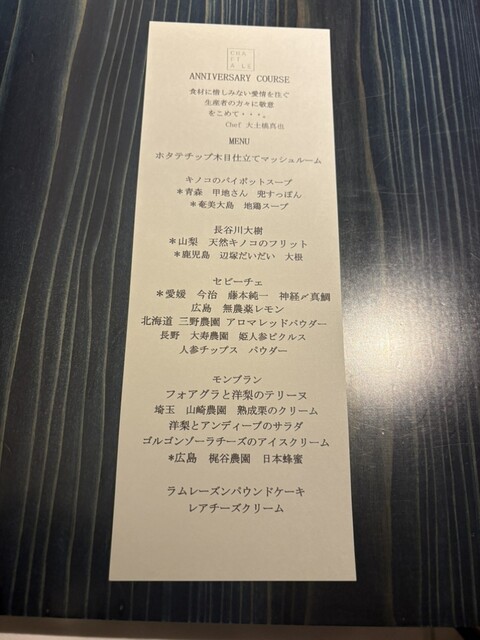 ANNIVERSARY COURSE
食材に惜しみない愛情を注ぐ
生産者の方々に敬意
をこめて・・・。
Chef 大土橋真也
MENU
ホタテチップ木目仕立てマッシュルーム
キノコのパイポットスープ
*青森 甲地さん 兜すっぽん
*奄美大島 地鶏スープ
長谷川大樹
*山梨 天然キノコのフリット
*鹿児島 辺塚だいだい 大根
セビーチェ
*愛媛 今治 藤本純一 神経〆真鯛
広島 無農薬レモン
北海道 三野農園 アロマレッドパウダー
長野 大寿農園 姫人参ピクルス
人参チップス パウダー
モンブラン
フォアグラと洋梨のテリーヌ
埼玉 山崎農園 熟成栗のクリーム
洋梨とアンディーブのサラダ
ゴルゴンゾーラチーズのアイスクリーム
*広島 梶谷農園 日本蜂蜜
ラムレーズンパウンドケーキ
レアチーズクリーム